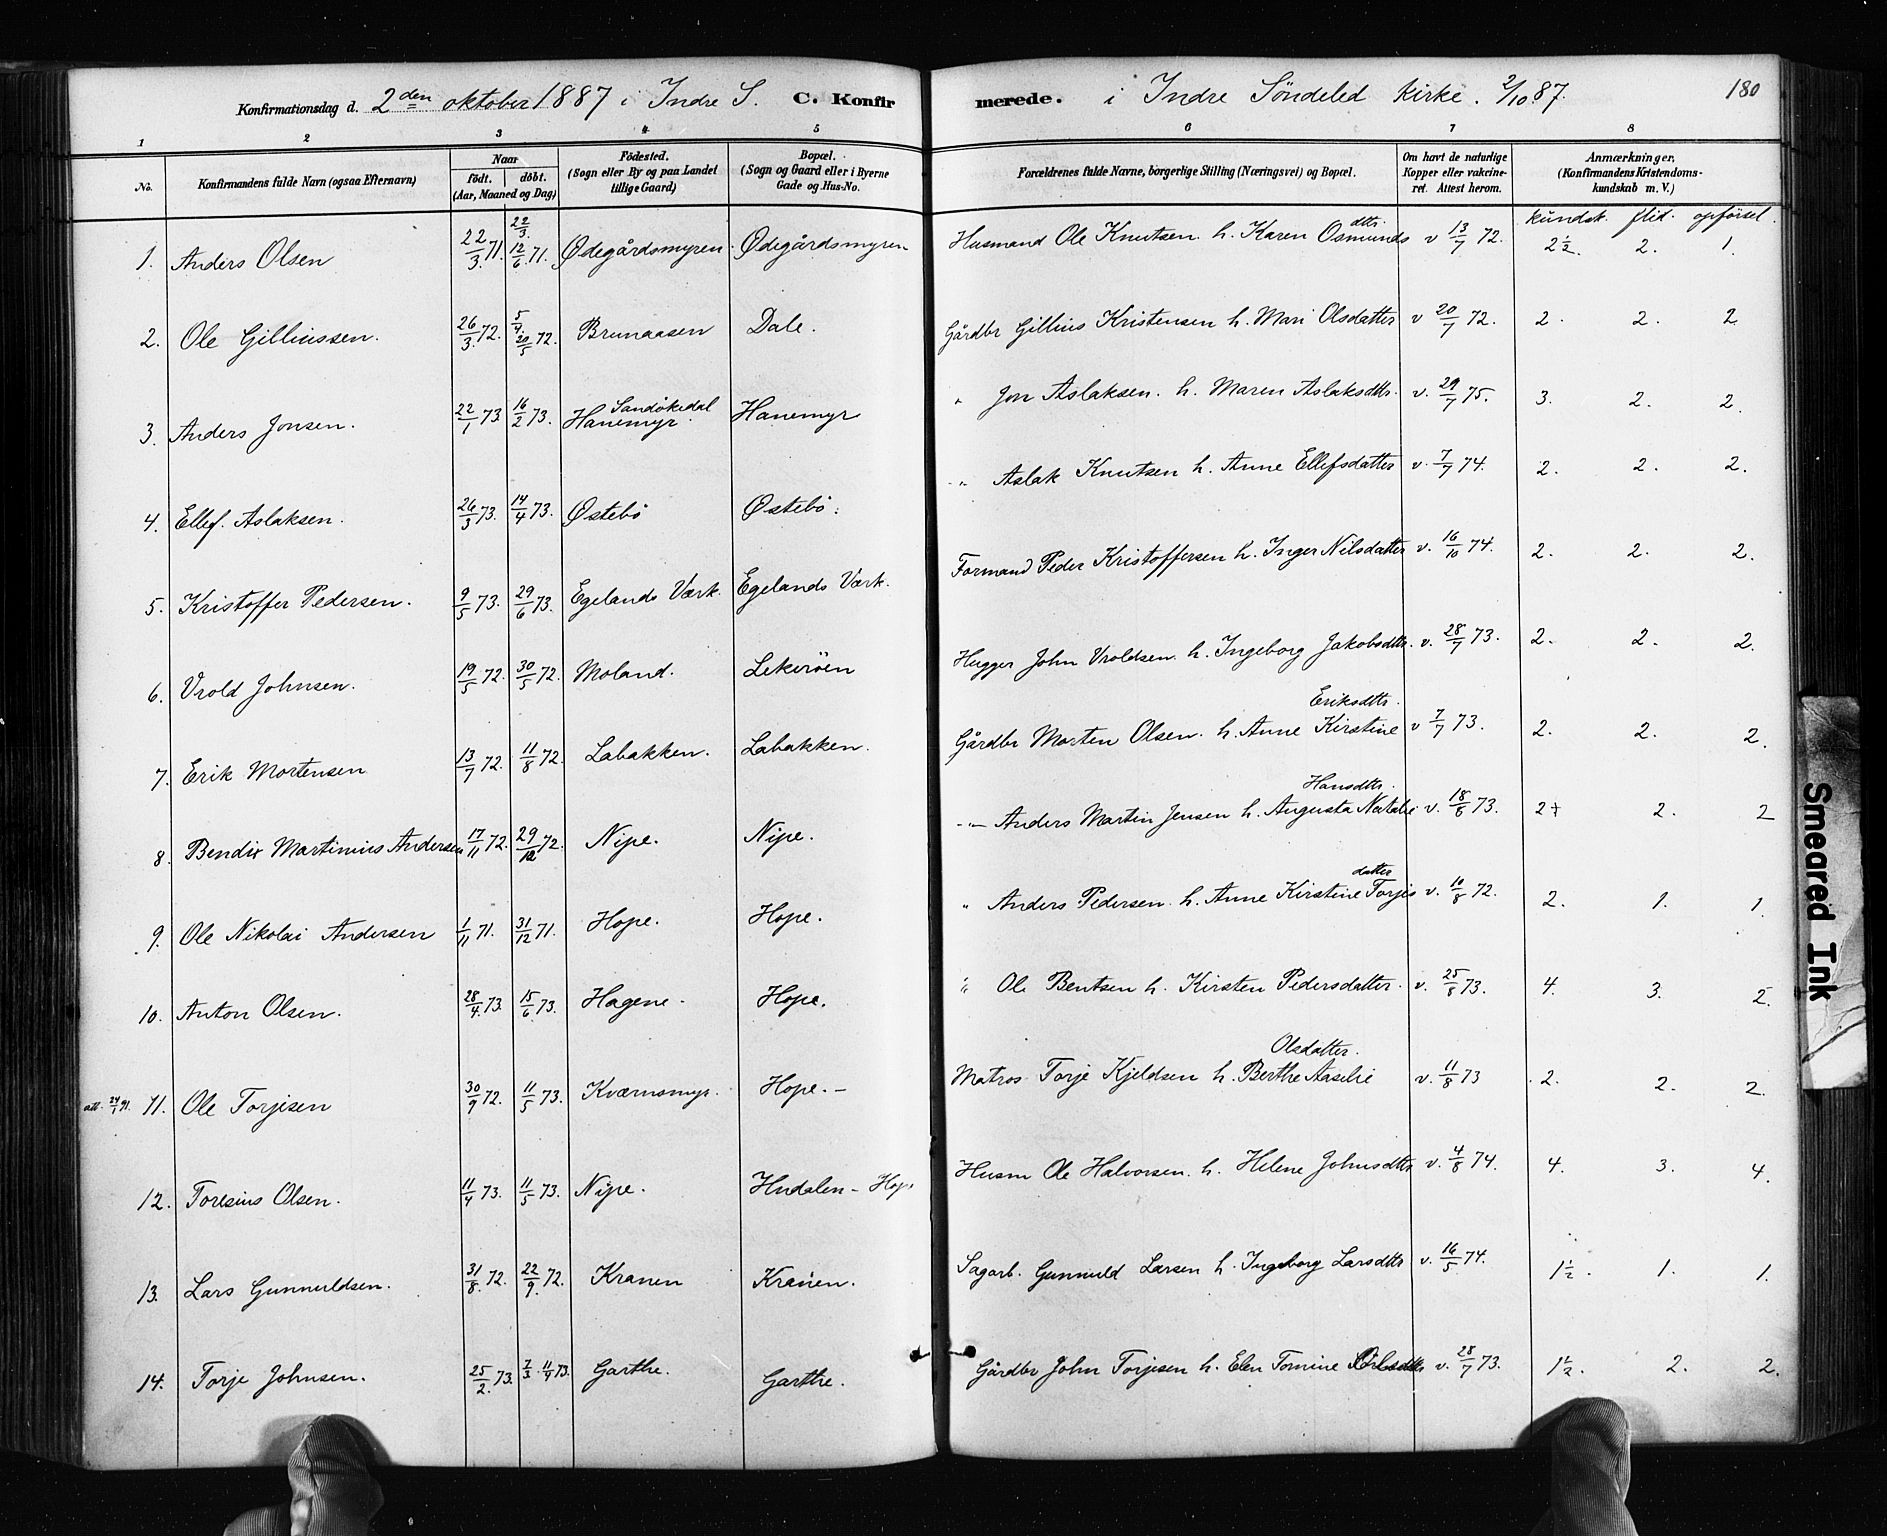 Konfirmationsdag d. 2den oktober 1887 i Indre S. C. Konfirmerede. i Indre Søndeled kirke. 2/10 87. 180
1 2 3 4 5 6 7 8
No. Konfirmandens fulde Navn (ogsaa Efternavn) Naar født. døbt. (Aar, Maaned og Dag) Fødested. (Sogn eller By og paa Landet tillige Gaard) Bopæl. (Sogn og Gaard eller i Byerne Gade og Hus-No. Forældrenes fulde Navne, borgerlige Stilling (Næringsvei) og Bopæl. Om havt de naturlige Kopper eller vakcineret. Attest herom. Anmærkninger, (Konfirmandens Kristendomskundskab m. V.)
kundsk. flid. opførsel.
1. Anders Olsen 22/3 71. 22/3. 12/6 71. Ødegårdsmyren Ødegårdsmyren Husmand Ole Knutsen h. Karen Osmundsdttr. v 13/7 72. 2 1/2. 2. 1.
2. Ole Gilliussen. 26/3 72. 5/4. 20/5 72. Brunaasen Dale. Gårdbr Gillius Kristensen h. Mari Olsdatter v 20/7 72. 2. 2. 2
3. Anders Jonsen. 22/1 73 16/2 73. Sandøkedal Hanemyr. Hanemyr " Jon Aslaksen. h. Maren Aslaksdttr. v. 29/7 75. 3. 2. 2.
4. Ellef. Aslaksen. 26/3 73. 14/4 73. Østebø Østebø. " Aslak Knutsen h. Anne Ellefsdatter v. 7/7 74. 2. 2. 2.
5. Kristoffer Pedersen. 9/5 73. 29/6 73. Egelands Værk. Egelands Værk. Formand Peder Kristoffersen h. Inger Nilsdatter v. 16/10 74. 2. 2. 2.
6. Vrold Johnsen. 19/5 72. 30/5 72. Moland. Lekerøen Hugger John Vroldsen h. Ingeborg Jakobsdttr. v. 28/7 73. 2. 2. 2.
7. Erik Mortensen 13/7 72. 11/8 72. Labakken. Labakken. Gårdbr Morten Olsen. h. Anne Kirstine Eriksdttr. v 7/7 73. 2. 2. 2.
8. Bendix Martinius Andersen 17/11 72. 29/12 72. Nipe. Nipe. -"- Anders Martin Jensen h. Augusta Natalie Hansdttr. v. 18/8 73. 2+ 2. 2
9. Ole Nikolai Andersen 1/11 71. 31/12 71. Hope. Hope. " Anders Pedersen h. Anne Kirstine Torjisdatter v. 10/8 72. 2. 1. 1.
10. Anton Olsen. 28/4 73. 15/6 73. Hagene. Hope. " Ole Bentsen h. Kirsten Pedersdatter. v. 25/8 73. 4. 3. 2.
att. 24/1 91. 11. Ole Torjisen 30/9 72. 11/5 73. Kværnsmyr. Hope. - Matros Torje Kjeldsen h. Berthe Aaselie Olsdatter. v. 11/8 73 2. 2. 2.
12. Toresius Olsen. 11/4 73. 11/5 73. Nipe. Hudalen - Hope Husm Ole Halvorsen. h. Helene Johnsdttr v. 4/8 74. 4. 3. 4.
13. Lars Gunnuldsen. 31/8 72. 22/9 72. Kranen Kranen. Sagarb. Gunnuld Larsen h. Ingeborg Larsdttr v. 16/5 74. 1 1/2. 1. 1.
14. Torje Johnsen. 25/2 73. 7/3. 11/4 73. Garthe. Garthe. Gårdbr John Torjesen h. Elen Tomine v. 28/7 73. 1 1/2. 2. 2.
Smeared Ink